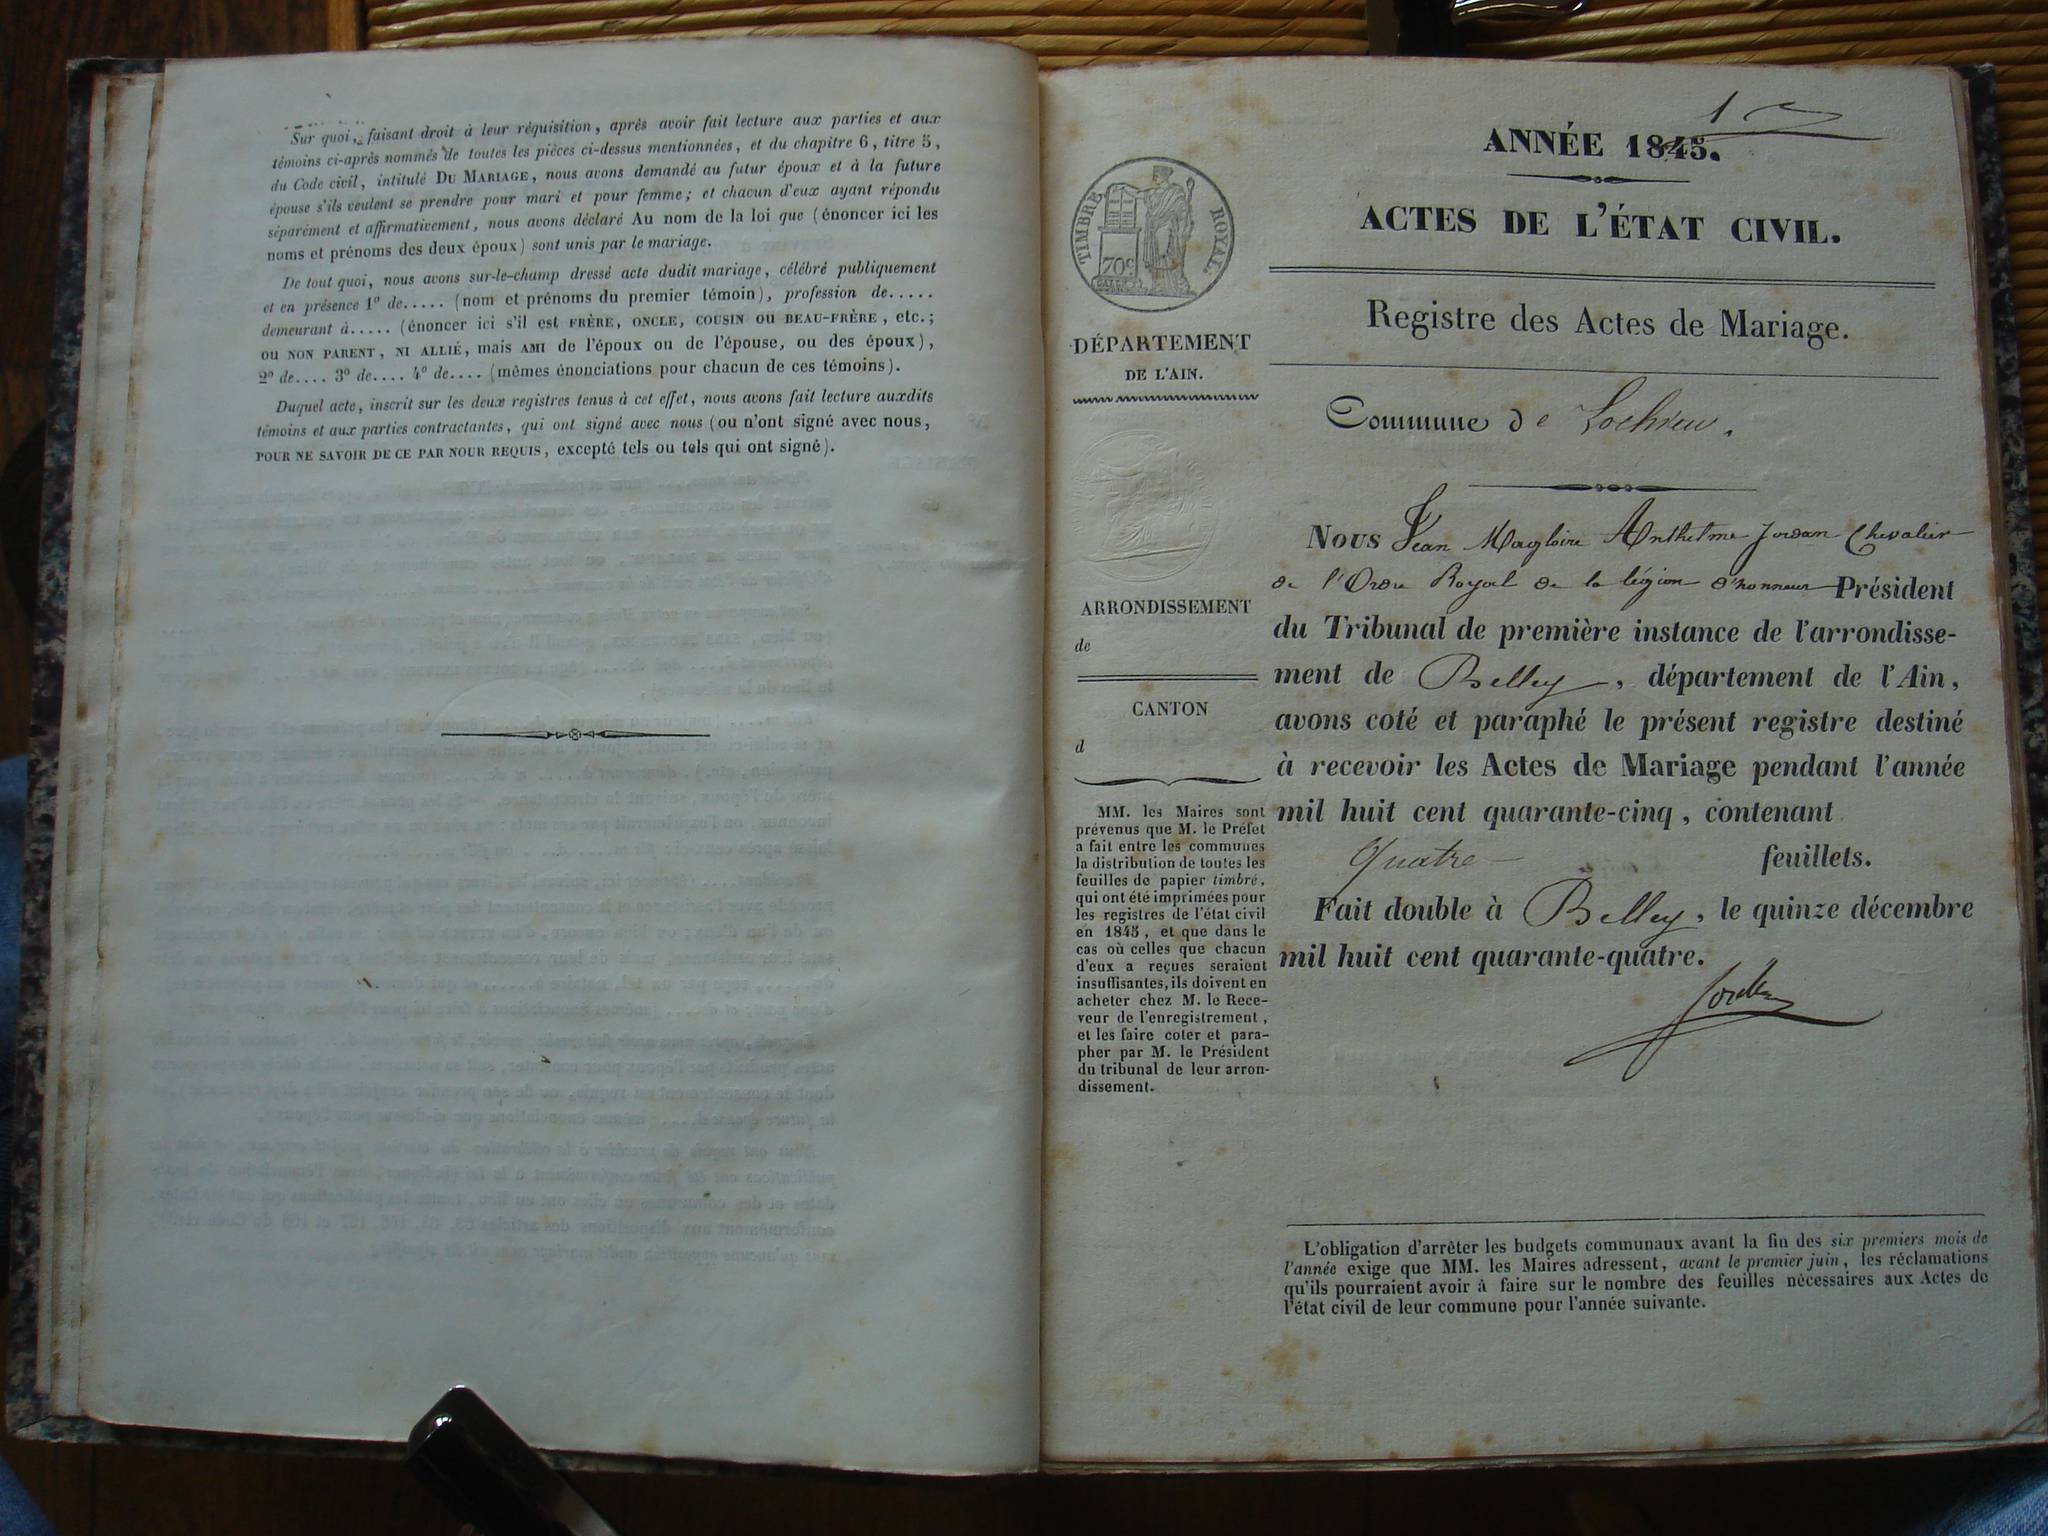 Sur quoi, faisant droit à leur réquisition, après avoir fait lecture aux parties et aux
témoins ci-après nommés de toutes les pièces ci-dessus mentionnées, et du chapitre 6, titre 5,
du Code civil, intitulé DU MARIAGE, nous avons demandé au futur époux et à la future
épouse s'ils veulent se prendre pour mari et pour femme; et chacun d'eux ayant répondu
séparément et affirmativement, nous avons déclaré Au nom de la loi que (énoncer ici les
noms et prénoms des deux époux) sont unis par le mariage.
De tout quoi, nous avons sur-le-champ dressé acte dudit mariage, célébré publiquement
et en présence 1º de..... (nom et prénoms du premier témoin), profession de.....
demeurant à..... (énoncer ici s'il est FRÈRE, ONCLE, COUSIN OU BEAU-FRÈRE, etc.;
OU NON PARENT, NI ALLIÉ, mais AMI de l'époux ou de l'épouse, ou des époux),
2º de.... 3º de.... 4º de.... (mêmes énonciations pour chacun de ces témoins).
Duquel acte, inscrit sur les deux registres tenus à cet effet, nous avons fait lecture auxdits
témoins et aux parties contractantes, qui ont signé avec nous (ou n'ont signé avec nous,
POUR NE SAVOIR DE CE PAR NOUR REQUIS, excepté tels ou tels qui ont signé).
1
ANNÉE 1845.
ACTES DE L'ÉTAT CIVIL.
Registre des Actes de Mariage.
Commune de Lochieu.
TIMBRE ROYAL.
70c
DÉPARTEMENT
DE L'AIN.
ARRONDISSEMENT
de
CANTON
d
MM. les Maires sont
prévenus que M. le Préfet
a fait entre les communes
la distribution de toutes les
feuilles de papier timbré,
qui ont été imprimées pour
les registres de l'état civil
en 1845, et que dans le
cas où celles que chacun
d'eux a reçues seraient
insuffisantes, ils doivent en
acheter chez M. le Rece-
veur de l'enregistrement,
et les faire coter et para-
pher par M. le Président
du tribunal de leur arron-
dissement.
Nous Jean Magloire Anthelme Jordan Chevalier
de l'Ordre Royal de la légion d'honneur Président
du Tribunal de première instance de l'arrondisse-
ment de Belley, département de l'Ain,
avons coté et paraphé le présent registre destiné
à recevoir les Actes de Mariage pendant l'année
mil huit cent quarante-cinq, contenant
Quatre feuillets.
Fait double à Belley, le quinze décembre
mil huit cent quarante-quatre.
Jordan
L'obligation d'arrêter les budgets communaux avant la fin des six premiers mois de
l'année exige que MM. les Maires adressent, avant le premier juin, les réclamations
qu'ils pourraient avoir à faire sur le nombre des feuilles nécessaires aux Actes de
l'état civil de leur commune pour l'année suivante.